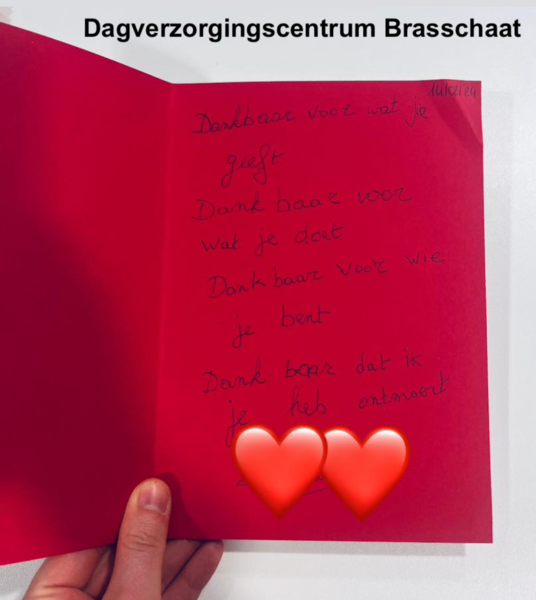 Dagverzorgingscentrum Brasschaat
14/02/24
Dankbaar voor wat je
geeft
Dank baar voor
wat je doet
Dank baar voor wie
je bent
Dank baar dat ik
je heb ontmoet